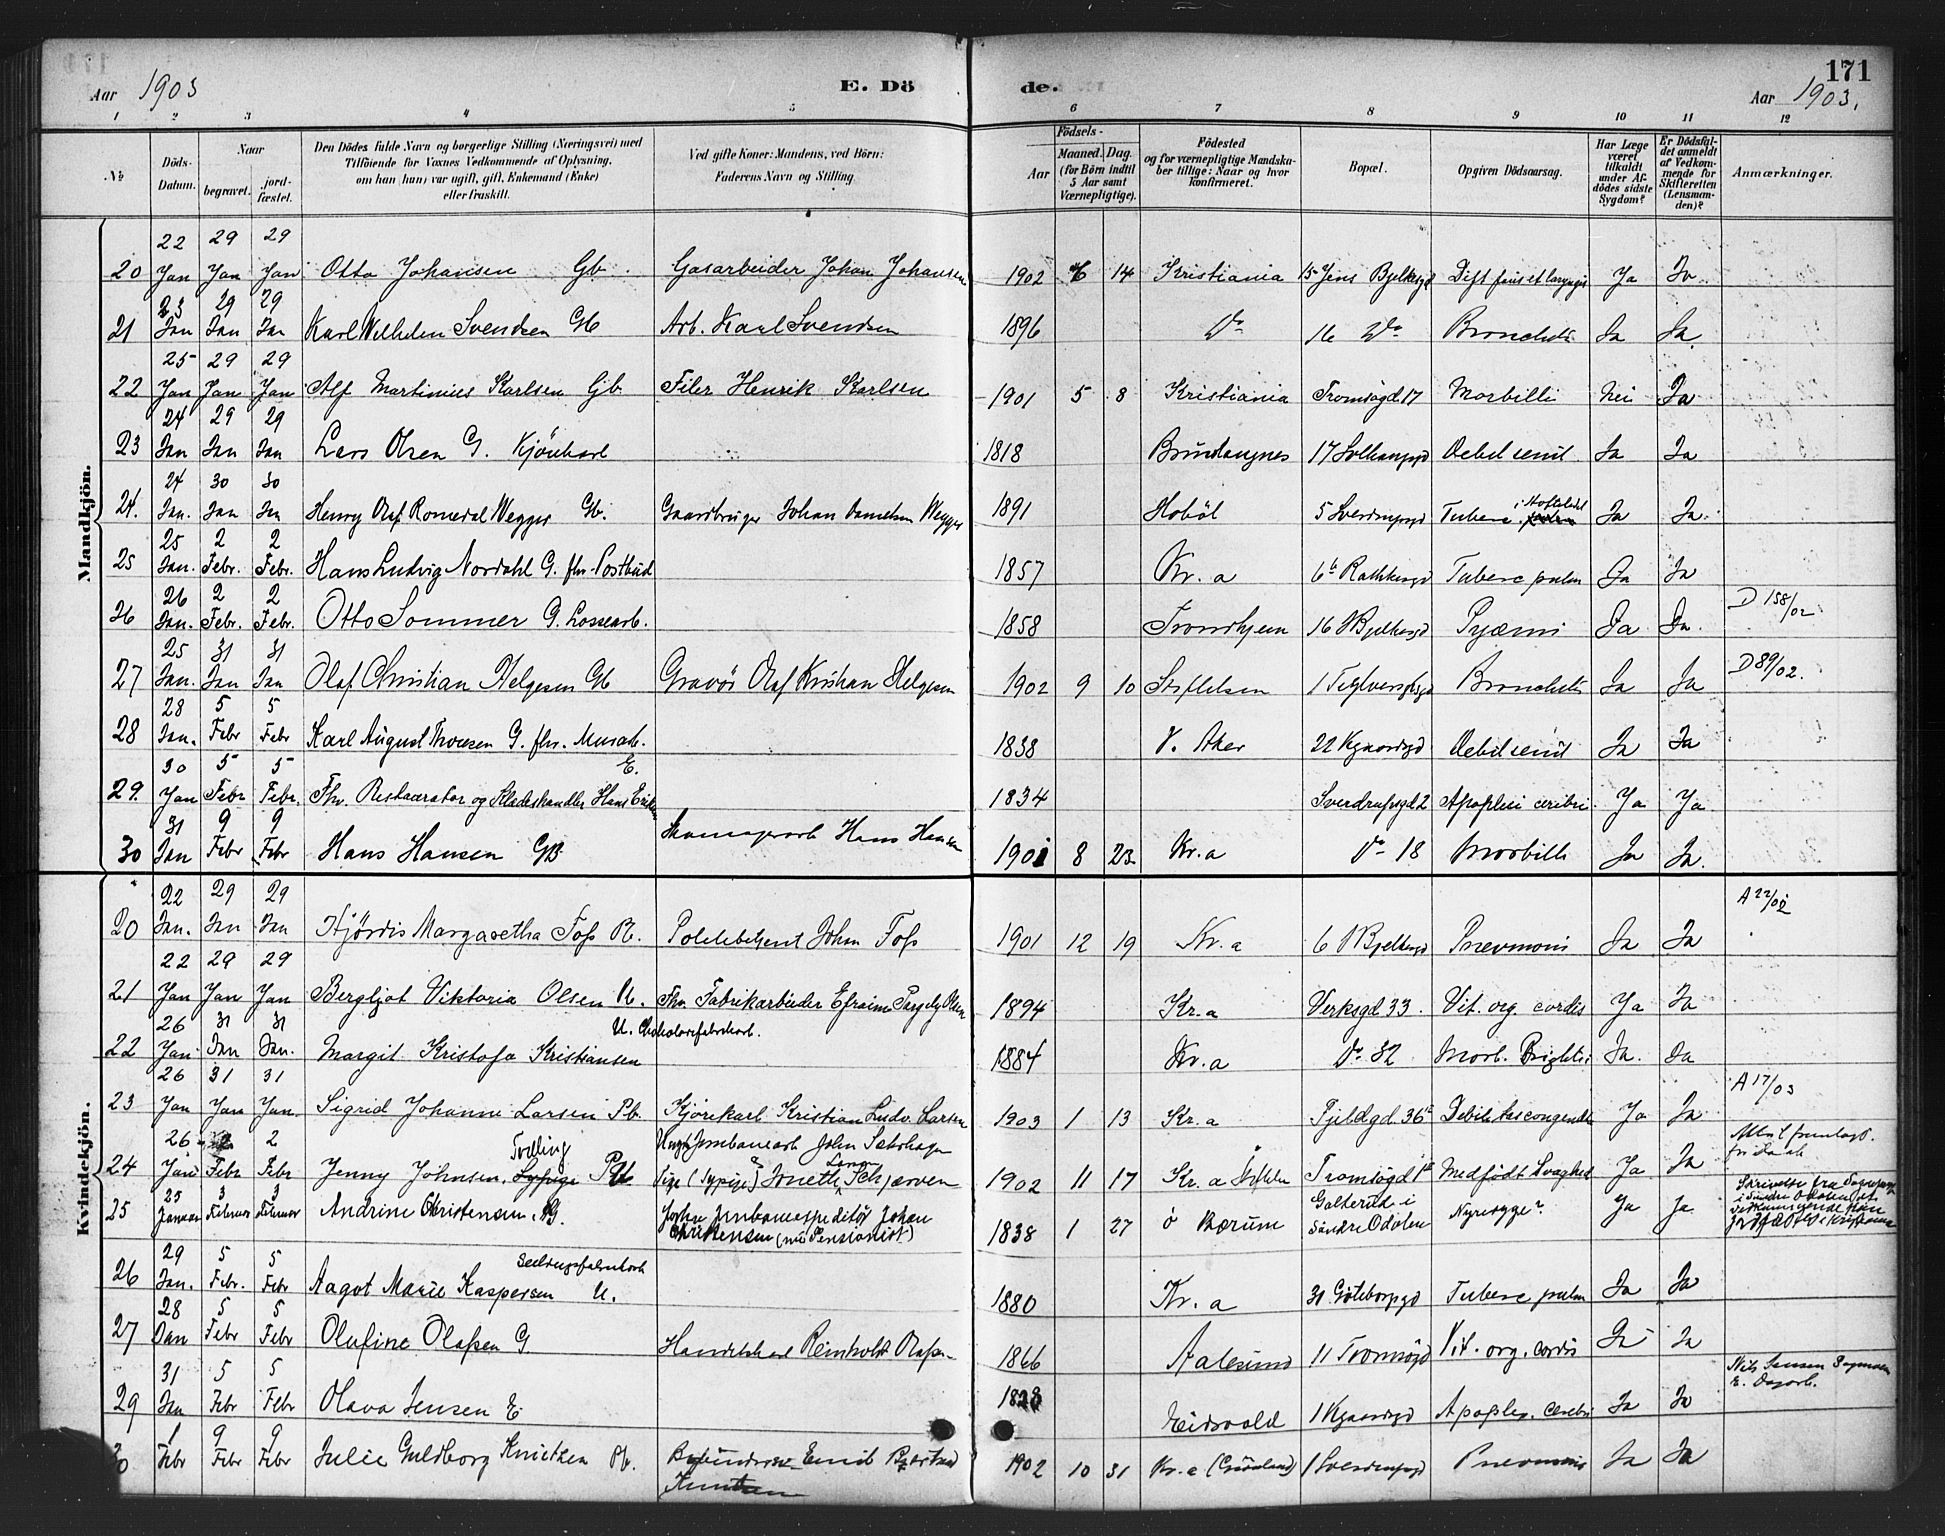 Aar 1903 E. Dö
de. 171
Aar 1903.
1 2 3 4 5 6 7 8 9 10 11 12
No
Döds-Datum.
Naar
begravet.
jord-fæstet.
Den Dödes fulde Navn og borgerlige Stilling (Næringsvei) med
Tilföiende for Voxnes Vedkommende af Oplysning,
om han (hun) var ugift, gift, Enkemand (Enke)
eller fraskilt.
Ved gifte Koner: Mandens, ved Börn:
Faderens Navn og Stilling
Födsels-
Aar
Maaned. Dag.
(for Börn indtil
5 Aar samt
Værnepligtige).
Födested
og for værnepligtige Mandska-
ber tillige: Naar og hvor
konfirmeret.
Bopæl.
Opgiven Dödsaarsag.
Har Læge
været
tilkaldt
under Af-
dödes sidste
Sygdom?
Er Dödsfal-
det anmeldt
af Vedkom-
mende for
Skifteretten
(Lensman-
den)?
Anmærkninger.
Mandkjön.
20 22 Jan 29 Jan 29 Jan Otto Johansen Gb. Gasarbeider Johan Johansen 1902 6 14 Kristiania 15 Jens Bjelkesgd Dift. fauc et laryngis Ja Ja
21 23 Jan 29 Jan 29 Jan Karl Wilhelm Svendsen Gb Arb. Karl Svendsen 1896 Do 16 Do Bronchitis Ja Ja
22 25 Jan 29 Jan 29 Jan Alf Martinius Karlsen Gb Filer Henrik Karlsen 1901 5 8 Kristiania Tromsögd 17 Morbilli Nei Ja
23 24 Jan 29 Jan 29 Jan Lars Olsen G. Kjörekarl 1818 17 Debil. senil. Ja Ja
24. 24 Jan. 30 Jan 30 Jan Henry Olaf Romedal Wegger Gb. Gaardbruger Johan Danielsen Wegger 1891 Hobøl 5 Sverdrupsgd Tuberc. i Hofteledd Ja Ja.
25 25 Jan. 2 Febr. 2 Febr. Hans Ludvig Nordahl G. fhv. Postbud 1857 Kr.a 6b Rathkesgd Tuberc pulm Ja Ja
26 26 Jan. 2 Febr. 2 Febr. Otto Sommer G. Lossearb. 1858 Trondhjem 16 J Bjelkesgd Pyæmi Ja Ja. D 158/02
27 25 Jan. 31 Jan 31 Jan Olaf Christian Helgesen Gb Gravör Olaf Kristian Helgesen 1902 9 10 Stiftelsen 1 Teglverksgd Bronchitis Ja Ja D 89/02.
28 28 Jan. 5 Febr 5 Febr Karl August Thoresen G. fhv. Murarb. 1838 V. Aker 22 Kgaardsgd Debil senil Ja Ja
29. 30 Jan 5 Febr 5 Febr. Fhv. Restauratør og Klædeshandler Hans Eriksen E. 1834 Sverdrupsgd 2 Apoplexi cerebri. Ja Ja
30 31 Jan 9 Febr 9 Febr Hans Hansen GB. Hans Hansen 1901 8 23 Kr.a Do 18 Morbilli Ja Ja.
Kvindekjön.
20 22 Jan. 29 Jan 29 Jan Hjørdis Margaretha Foss Pb. Politibetjent Johan Foss 1901 12 19 Kr.a 6 J Bjelkesgd Pnevmoni Ja Ja A 22/02
21 22 Jan 29 Jan 29 Jan Bergljot Viktoria Olsen Pb. Fhv. Fabrikarbeider Efraim Olsen 1894 Kr.a Verksgd 33. Vit. org. cordis Ja Ja
22 26 Jan 31 Jan 31 Jan. Margit Kristofa Kristiansen U. Chokoladefabrikarb. 1884 Kr.a Do 32 Morb. Brightii Ja. Ja
23 26 Jan 31 Jan 31 Jan. Sigrid Johanne Larsen Pb. Kjörekarl Kristian Ludv. Larsen 1903 1 13 Kr.a Pjeldgd. 36a Debilitas congenita Ja Ja A 17/03
24 26 Jan 2 Febr 2 Febr Jenny Johnsen, Tvilling Pb. Ungk. Jernbanearb John Sæterhagen Pige (Sypige) 1902 11 17 Kr. a Stiftelsen Tromsögd 1b Medfødt Svaghed Ja Ja
25 25 Januar 3 Februar 3 Februar Andrine Christensen, G. Jernbaneexpeditør Johan Christensen (nu Pensionist) 1838 1 27 Ø Bærum Galterud i Søndre Odalen Nyresyge? Ja Ja Skrivelse fra Sognepr. i Søndre Odalen
26 29 Jan. 5 Febr. 5 Febr Aagot Marie Kaspersen U. 1880 Kr.a 31 Göteborggd Tuberc pulm Ja Ja
27 28 Jan 5 Febr 5 Febr Olufine Olafsen G Handelskarl Reinholdt Olafsen 1866 Aalesund 11 Tromsögd Vit. org. cordis Ja Ja
29 31 Jan 5 Febr 5 Febr Olava Jensen E 1828 Eidsvold 1 Kgaardsgd Apoplex. cerebri Ja Ja Nils Jensen E. Dagarb.
30 1 Febr 9 Febr 9 Febr Julie Guldborg Knutsen Pb. Emil Knutsen 1902 10 31 Kr. a (Grönland) 1 Sverdrupsgd Pnevmoni Ja Ja